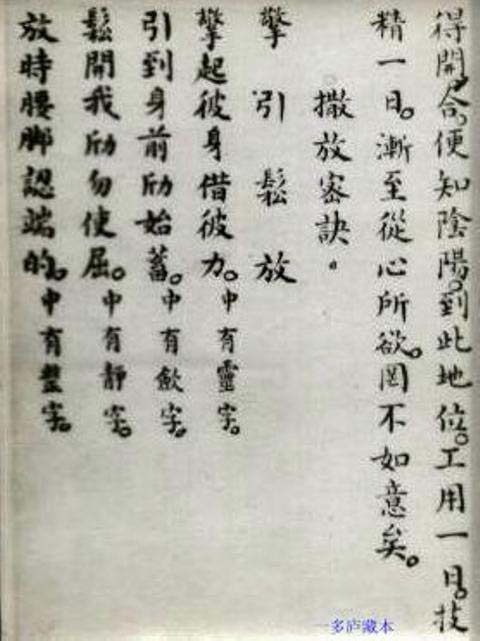 得開合。便知陰陽。到此地位。工用一日。技
精一日。漸至從心所欲。罔不如意矣。
撒放密訣。
擎 引 鬆 放
擎起彼身借彼力。中有靈字。
引到身前劤始蓄。中有斂字。
鬆開我劤勿使屈。中有靜字。
放時腰脚認端的。中有整字。
一多庐藏本